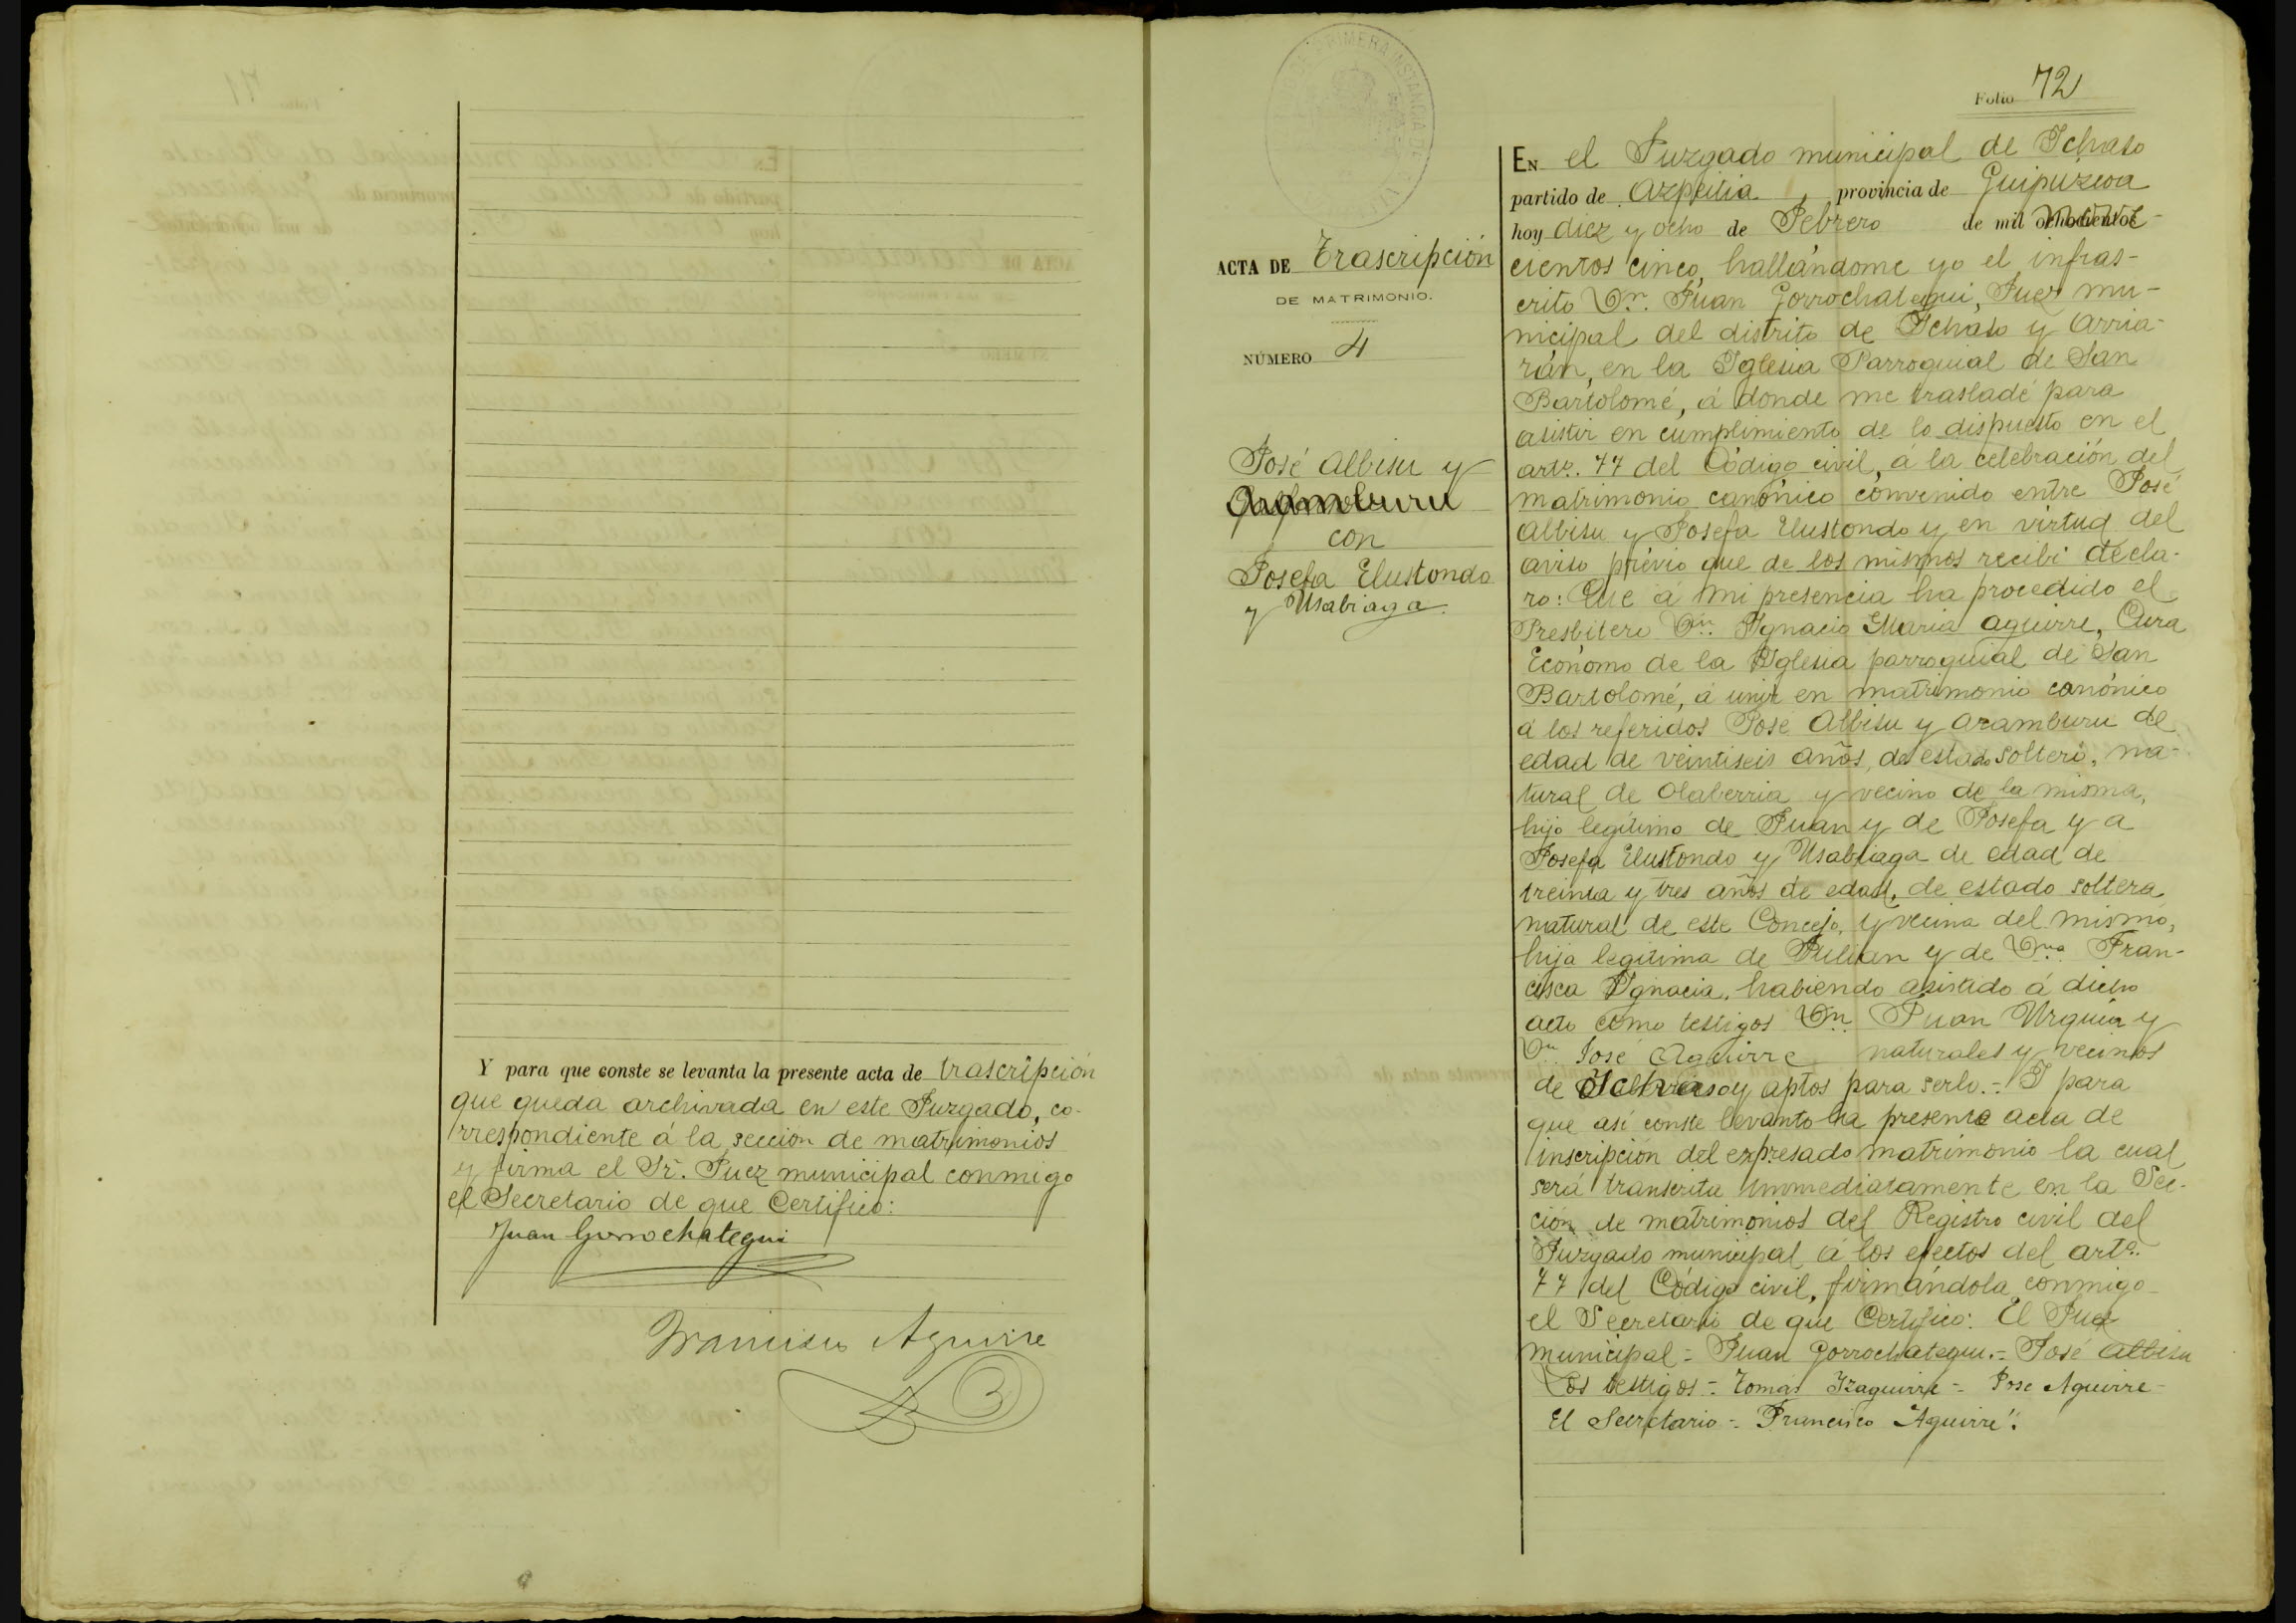 Y para que conste se levanta la presente acta de trascripción
que queda archivada en este Juzgado, co-
rrespondiente á la sección de matrimonios
y firma el Sr. Juez municipal conmigo
el Secretario de que Certifico:
Juan Gorrochategui
Francisco Aguirre
Folio 72
ACTA DE Trascripción
DE MATRIMONIO.
NÚMERO 4
José Albisu y
Aramburu
con
Josefa Elustondo
y Usabiaga.
EN el Juzgado municipal de Ichaso
partido de Azpeitia, provincia de Guipuzcoa
hoy diez y ocho de Febrero de mil nove-
cientos cinco, hallándome yo el infras-
crito Dn. Juan Gorrochategui, Juez mu-
nicipal del distrito de Ichaso y Arria-
rán, en la Iglesia Parroquial de San
Bartolomé, á donde me trasladé para
asistir en cumplimiento de lo dispuesto en el
artº. 77 del Código civil, á la celebración del
matrimonio canónico convenido entre José
Albisu y Josefa Elustondo y en virtud del
aviso prévio que de los mismos recibi decla-
ro: Que á mi presencia ha procedido el
Presbitero Dn. Ignacio Maria Aguirre, Cura
Ecónomo de la Iglesia parroquial de San
Bartolomé, á unir en matrimonio canónico
á los referidos José Albisu y Aramburu de
edad de veintiseis años, de estado soltero, na-
tural de Olaberria y vecino de la misma,
hijo legitimo de Juan y de Josefa y a
Josefa Elustondo y Usabiaga de edad de
treinta y tres años de edad, de estado soltera
natural de este Concejo, y vecina del mismo,
hija legitima de Julian y de Dña Fran-
cisca Ignacia, habiendo asistido á dicho
acto como testigos Dn. Juan Urquia y
Dn. José Aguirre naturales y vecinos
de Ichaso y aptos para serlo.= I para
que así conste levanto la presente acta de
inscripción del expresado matrimonio la cual
será transcrita inmediatamente en la Sec-
ción de matrimonios del Registro civil del
Juzgado municipal á los efectos del artº.
77 del Código civil, firmándola conmigo
el Secretario de que Certifico: El Juez
municipal = Juan Gorrochategui.= José Albisu
Los testigos = Tomás Izaguirre = Jose Aguirre =
El Secretario = Francisco Aguirre".